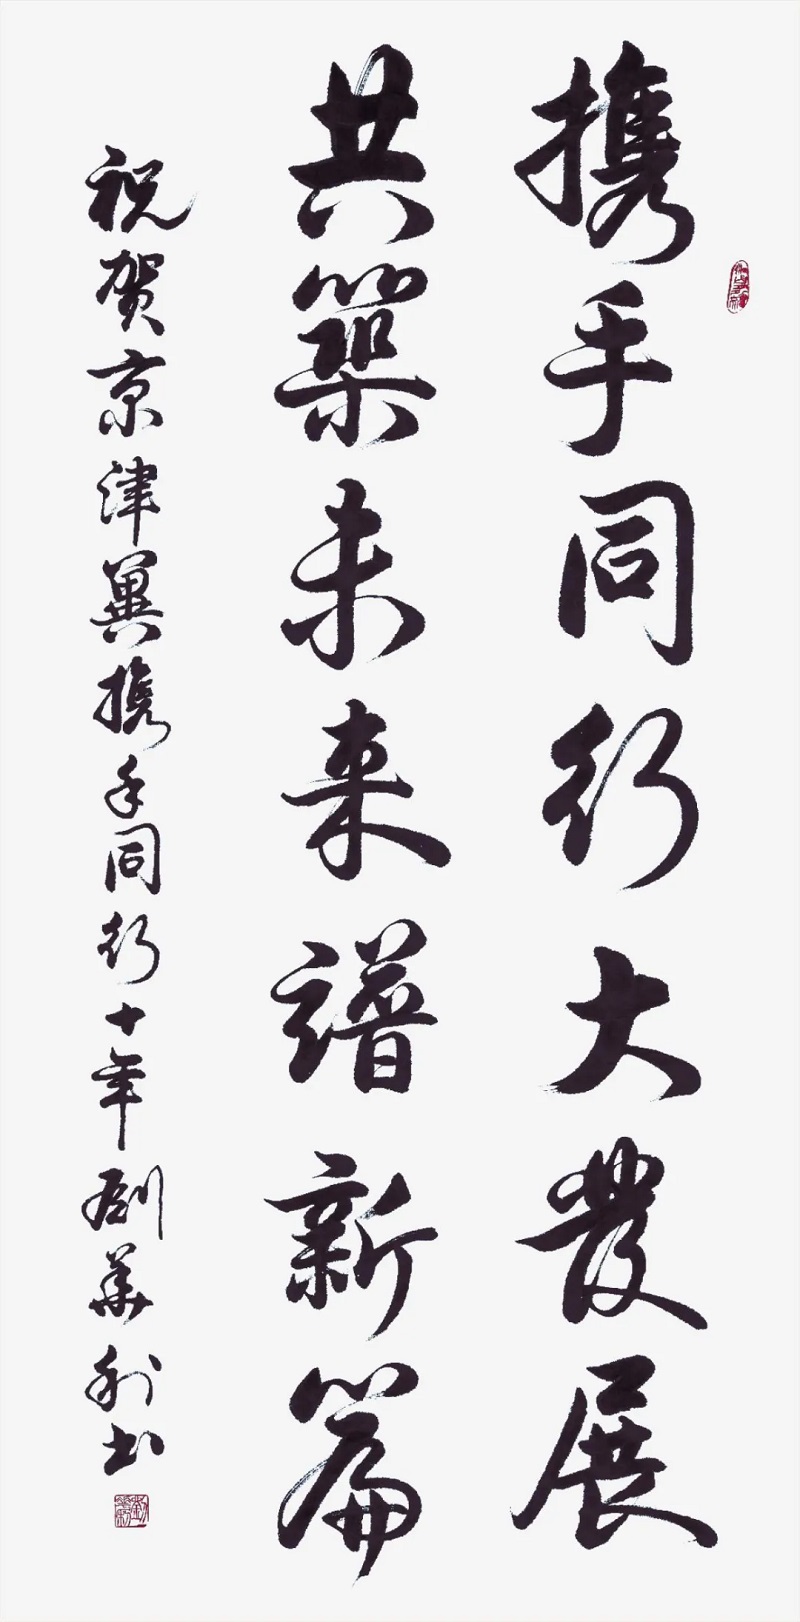 携手同行大發展
共築未来譜新篇
祝贺京津冀携手同行十年刘华利书